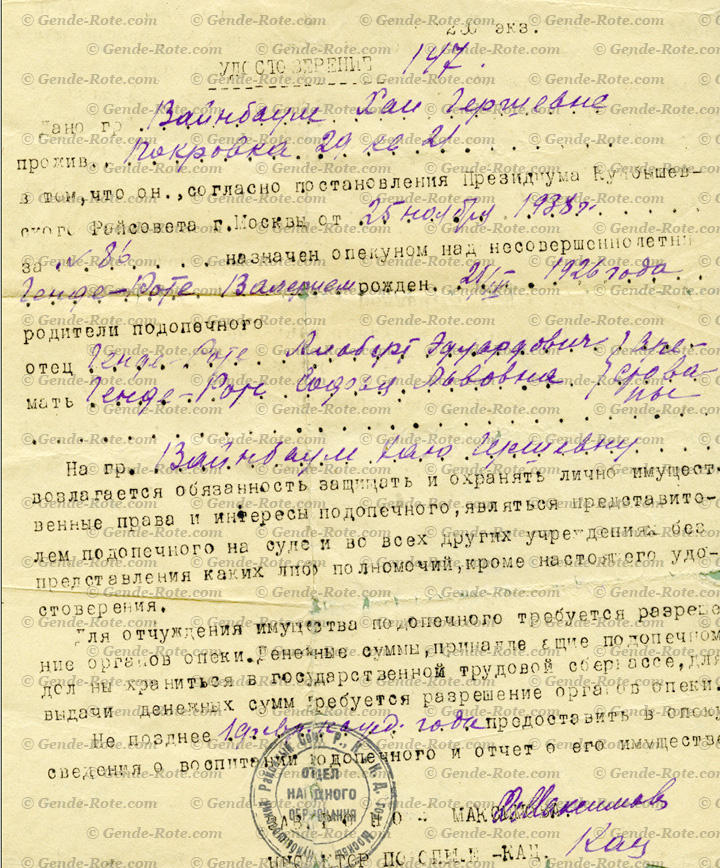 2 экз.
УДОСТОВЕРЕНИЕ 147.
Дано гр. Вайнбаум Хае Гершевне
прожив. Покровка 29 кв 21
в том, что он., согласно постановления Президиума Куйбышев-
ского Райсовета г.Москвы от 25 ноября 1938 г.
за № 86 назначен опекуном над несовершеннолетни
Генде-Роте Валерием рожден. 1926 года
родители подопечного
отец Генде-Роте Альберт Эдуардович } Аре-
мать Генде-Роте София Львовна } стова-
ны
На гр. Вайнбаум Хаю Гершевну
возлагается обязанность защищать и охранять лично имущест-
венные права и интересы подопечного, являться представите-
лем подопечного на суде и во всех других учреждениях без
представления каких либо полномочий, кроме настоящего удо-
стоверения.
Для отчуждения имущества подопечного требуется разреше
ние органов опеки. Денежные суммы, принадлежащие подопечном
должны храниться в государственной трудовой сберкассе, для
выдачи денежных сумм требуется разрешение органов опеки.
Не позднее 19 года предоставить в опеку
сведения о воспитании подопечного и отчет о его имуществе
ОТДЕЛ
НАРОДНОГО
ОБРАЗОВАНИЯ
Максимов
ИНСПЕКТОР ПО ОПЕКЕ -КАЦ. Кац
© Gende-Rote.com